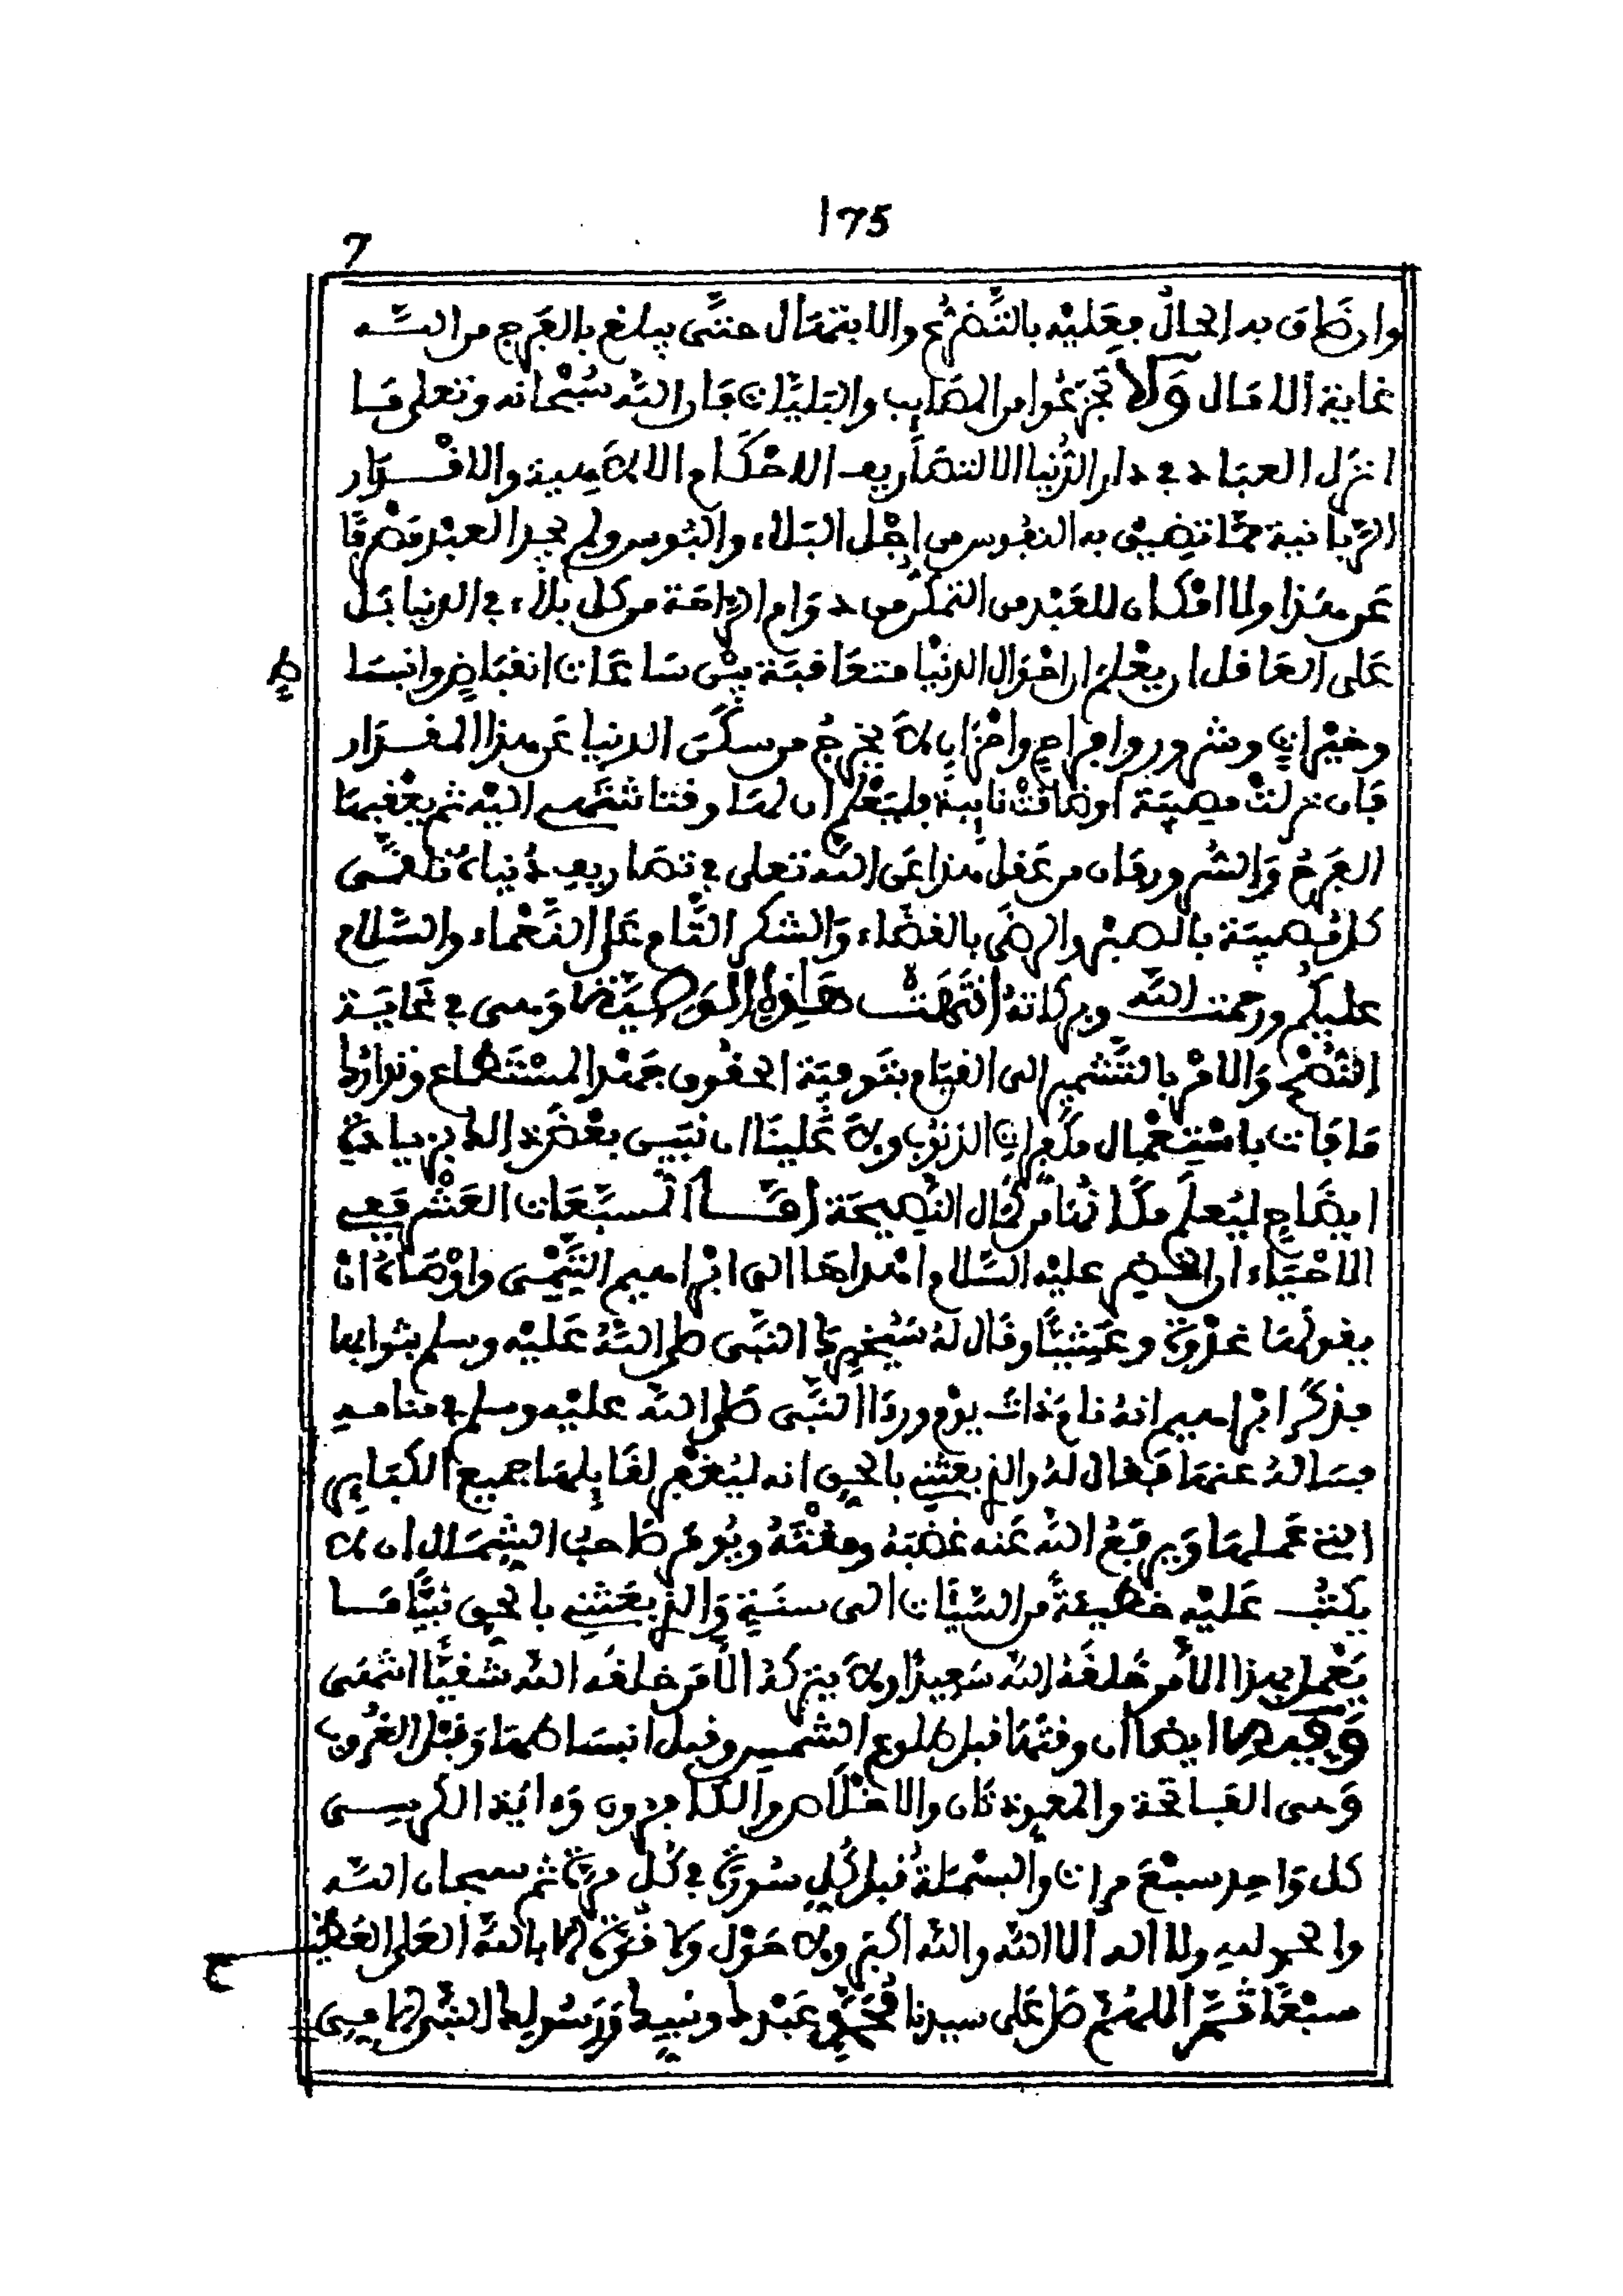 175
7
وان ضاق به الحالُ فعَليْه بالتَّضرُّع والابتهَال حتَّى يبلغ بالفَرج من اللَّه
غاية الامَال وَلَا تَجْزَعُوا من المصَايب والبَليَّات فَان اللَّه سُبْحانه وتعلى مَا
انزل العبَاد في دار الدُّنيا الا لتصَاريف الاحْكَام الالاهية والاقْدَار
الرَّبانية ممَّا تضِيق به النفوس من اجْل البَلاء والبُوس ولم يجد العبْد مَصْرفًا
عَن هَذا ولا امْكان للعَبْد من التمكُّن من دوَام الرَّاحَة من كل بلاء في الدنيا بَل
عَلى العَاقل ان يعْلمَ ان احْوَال الدنْيا متعَاقبَة بيْن سَاعَات انقبَاضٍ وانبسَا
طٍ
وخيْراتٍ وشرورٍ وافراحٍ واحْزَانٍ لَا يخرجُ من سكَن الدنيا عَن هذا المقدَار
فَان نزلتْ مصيبَة او ضاقتْ نايبَة فليَعْلم ان لهَا وقتا تنتهى اليْه ثم يعْقبهَا
الفَرجُ وَالسُّرور فَان من عَقل هذا عَن اللَّه تعلى في تصَاريف دُنياهُ تلقَّى
كل مُصيبَة بالصبْر والرضَى بالقضَاء وَالشكر التَّام عَلى النَّعْماء والسَّلام
عليكُم ورحمت اللَّه وبركاتهُ انْتَهَتْ هَذِهِ الوَصِيَّة وَهى في غَايَة
النُّصْح وَالامْر بالتَّشمير الى القيَام بتَوفيَة الحقُوق جَهْد المسْتَطاع وتدارُك
مَا فَات باسْتِعْمال مكَفراتِ الذنوبِ ولا عَلينَا ان نبَين بعْضَ ذالك بزيادة
ايضَاحٍ ليُعلَم مكَانُهَا من كمَال النَّصِيحَة امَّا المسبَّعَات العَشْر فَفى
الاحْيَاء ان الخضِر عليْه السَّلام اهْداهَا الى ابْراهيم التَّيْمِى واوْصَاهُ انْ
يقولهَا غدْوةً وعَشِيَّةً وقَال لهُ سَيُخبرك النبَّى صلى اللَّهُ عَليْه وسلم بثوابها
فذكَر ابْراهيم انهُ نامَ ذات يوْم ورءَا النَّبى صَلى اللَّه عليْه وسلم في منامه
فسَالهُ عنهَا فَقال لهُ والذي بعَثنِي بالحَق انه ليُغْفر لقَايلهَا جميع الكبَاير
التي عَملهَا وَيرفَعُ اللَّه عَنه غضَبَهُ ومقْتَهُ ويُومَر صَاحبُ الشِمَال ان لا
يكتُب عَليْه خَطِيئةً من السَّيِّئات الى سنَةٍ وَالذي بعَثنِي بالحَق نبيًّا مَا
يَعْمل بهذا الا من خَلقَهُ اللَّه سَعِيدًا ولا يتركهُ الا مَن خلقَه اللَّه شَقيًّا انتهَى
وَفِيهَا ايضا ان وقتَهَا قبل طلوع الشمس وقبل انبسَاطهَا وَقبْل الغُروب
وَهى الفَاتحَة والمعوذتَان والاخْلَاص والكَافرون وَءايَة الكرسِى
كل وَاحِد سبْعَ مرات والبسْمَلةُ قبل كُلِ سُورَةٍ في كُل مرةٍ ثم سبحان اللَّه
والحمد لله ولا اله الا اللَّه واللَّه اكبَر ولا حَوْل ولا قُوَّة الا باللَّه العَلى العَظِيم
سبْعًا ثمَّ اللهُمَّ صَل عَلى سيدنا مُحَمَّدٍ عَبْدك ونبيك وَرَسُولِك النبِّى الامى